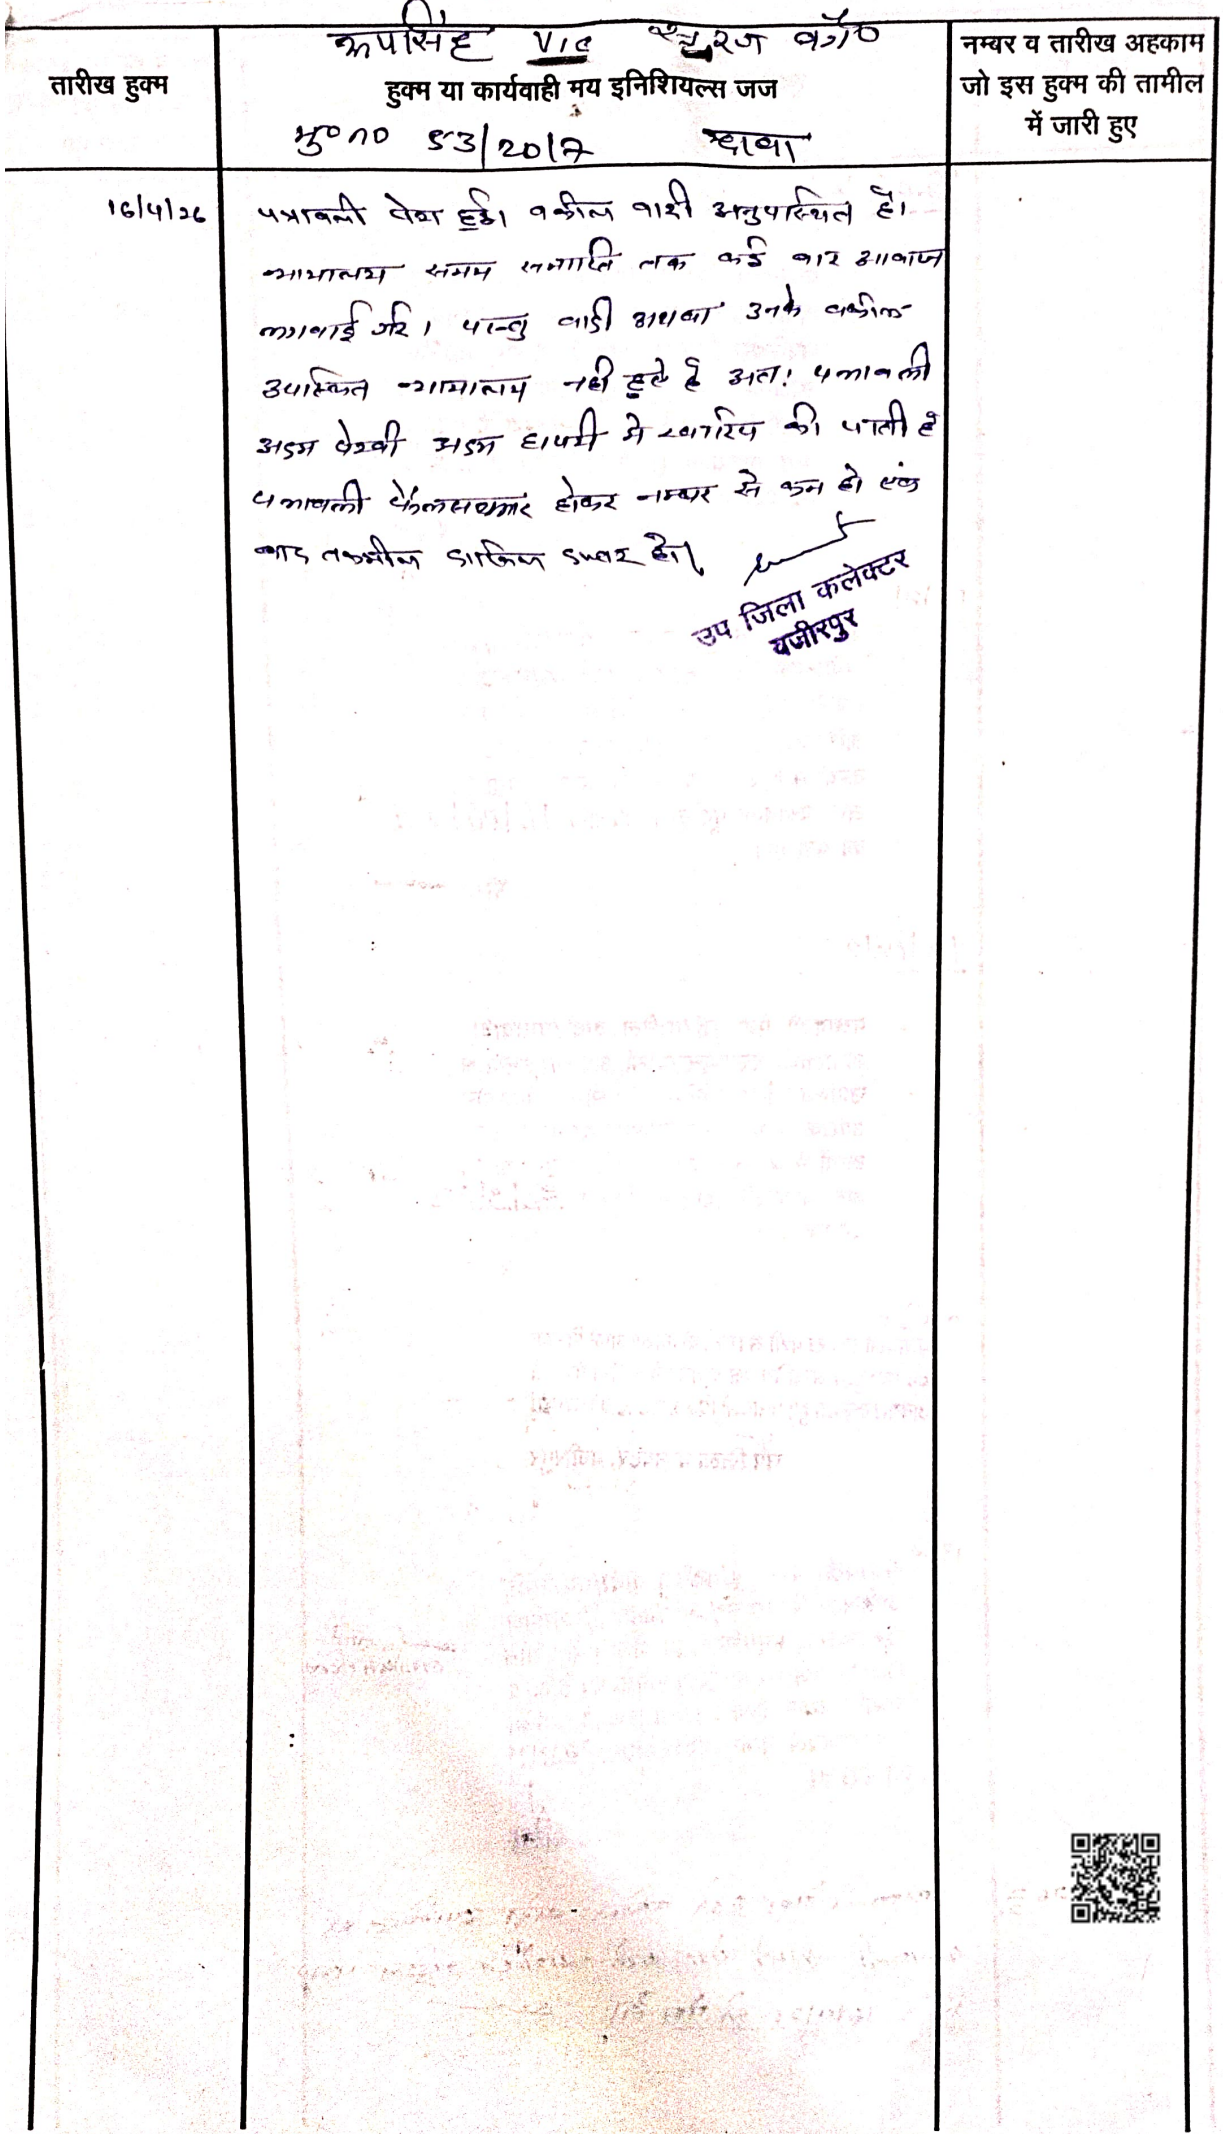 रूपसिंह V/S सूरज वगै०
तारीख हुक्म
हुक्म या कार्यवाही मय इनिशियल्स जज
नम्बर व तारीख अहकाम
जो इस हुक्म की तामील
में जारी हुए
मु०न० 53/2017 दावा
16/4/26
पत्रावली पेश हुई। वकील वादी अनुपस्थित है।
न्यायालय समय समाप्ति तक कई बार आवाज
लगवाई गई। परन्तु वादी अथवा उनके वकील
उपस्थित न्यायालय नही हुये है अतः पत्रावली
अदम पैरवी अदम हाजरी मे खारिज की जाती है
पत्रावली फैसलशुमार होकर नम्बर से कम हो एंव
बाद तकमील दाखिल दफ्तर हो।
उप जिला कलेक्टर
वजीरपुर